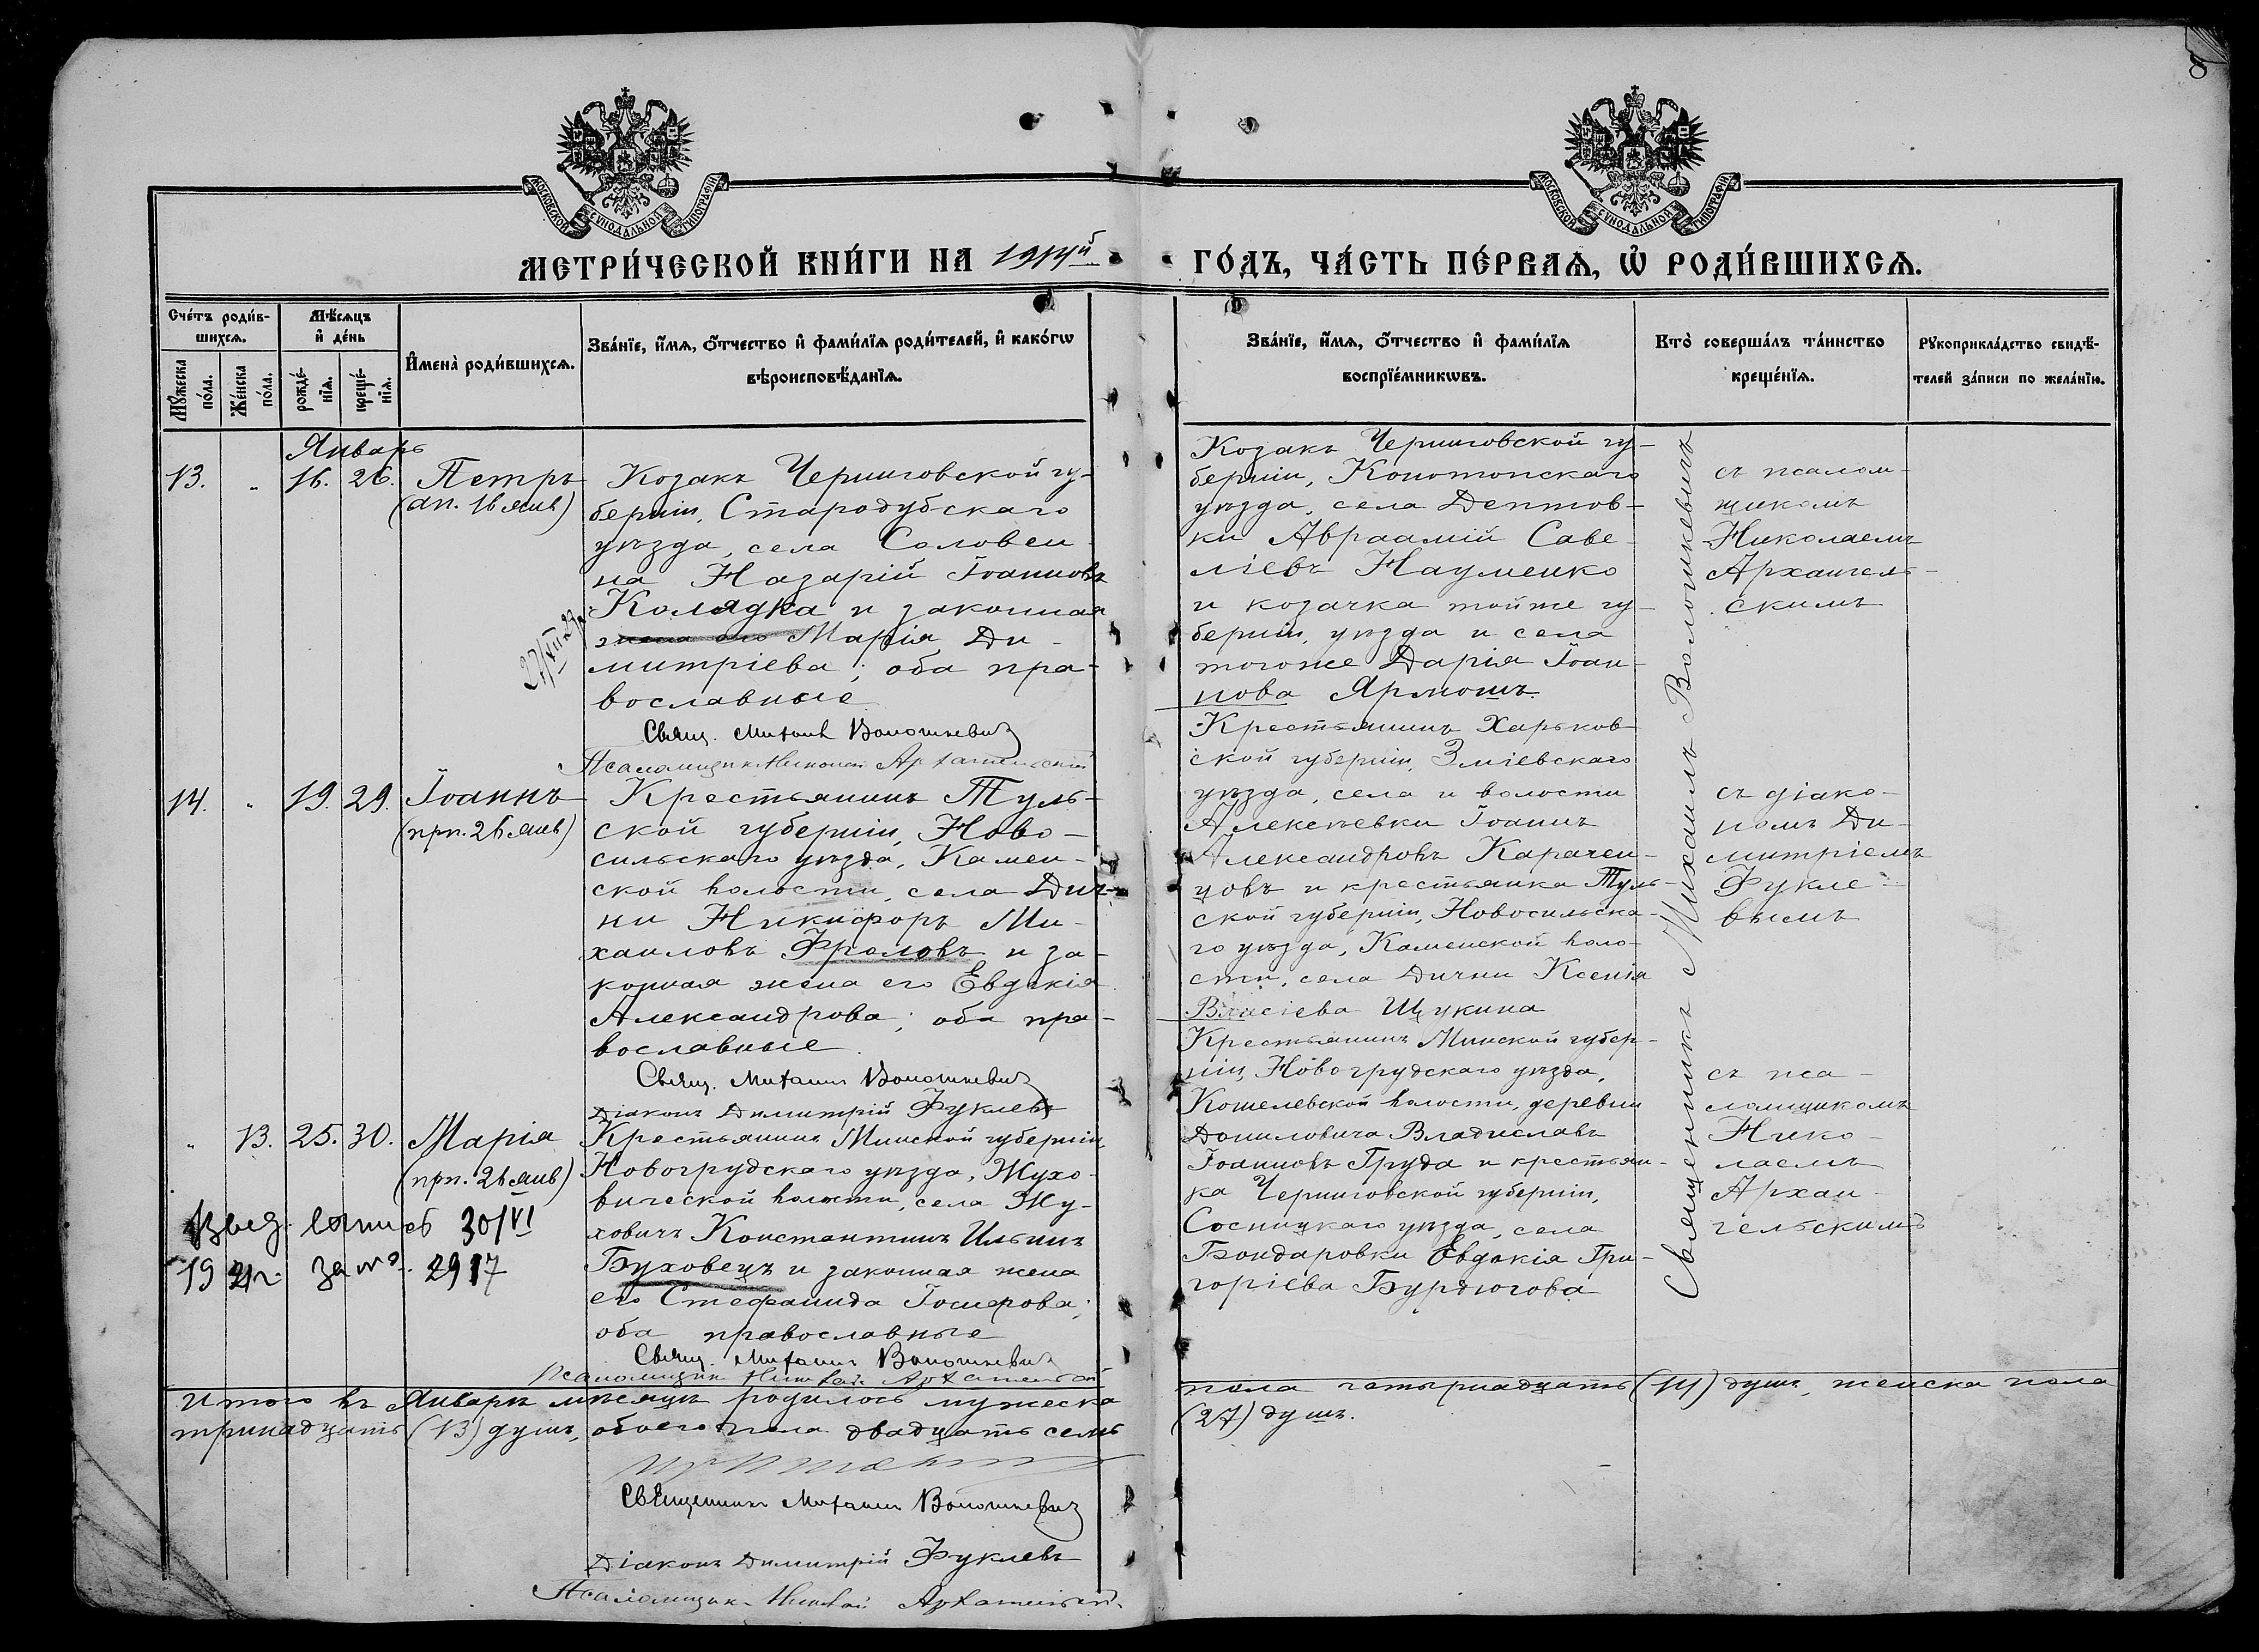 8
МОСКОВСКОЙ СѴНОДАЛЬНОЙ ТИПОГРАФІИ
МОСКОВСКОЙ СѴНОДАЛЬНОЙ ТИПОГРАФІИ
МЕТРИ́ЧЕСКОЙ КНИ́ГИ НА 1914й ГО́ДЪ, ЧА́СТЬ ПЕ́РВАѦ, Ѡ҆ РОДИ́ВШИХСѦ.
Сче́тъ роди́в-
шихсѧ.
Мꙋ́жеска по́ла.
Же́нска по́ла.
Мѣ́сѧцъ и҆ де́нь
рожде́-
нїѧ.
креще́-
нїѧ.
И҆мена̀ роди́вшихсѧ.
Зва́нїе, и҆́мѧ, ѻ҆́тчество и҆ фами́лїѧ роди́телей, и҆ како́гѡ
вѣроисповѣ́данїѧ.
Зва́нїе, и҆́мѧ, ѻ҆́тчество и҆ фами́лїѧ
воспрїе́мникѡвъ.
Кто̀ соверша́лъ та́инство
креще́нїѧ.
Рꙋкоприкла́дство свидѣ́-
телей за́писи по жела́нїю.
Январь
13. " 16. 26. Петръ
(ап. 16 янв)
Козакъ Черниговской гу-
берніи, Стародубскаго
уѣзда, села Соловьи-
на Назарій Іоанновъ
Колядка и законная
жена его Марія Ди-
митріева; оба пра-
вославные
Свящ. Михаилъ Волошкевичъ
Псаломщикъ Николай Архангельскій
Козакъ Черниговской гу-
берніи, Конотопскаго
уѣзда, села Дептов-
ки Авраамій Саве-
ліевъ Науменко
и козачка тойже гу-
берніи, уѣзда и села
тогоже Дарія Іоан-
нова Ярмошъ.
съ псалом-
щикомъ
Николаемъ
Архангель-
скимъ
Священникъ Михаилъ Волошкевичъ
14. " 19. 29. Іоаннъ
(прп. 26 янв)
Крестьянинъ Туль-
ской губерніи, Ново-
сильскаго уѣзда, Камен-
ской волости, села Дич-
ни Никифоръ Ми-
хаиловъ Фроловъ и за-
конная жена его Евдокія
Александрова; оба пра-
вославные.
Свящ. Михаилъ Волошкевичъ
Діаконъ Димитрій Фуклевъ
Крестьянинъ Харьков-
ской губерніи, Зміевскаго
уѣзда, села и волости
Алексѣевки Іоаннъ
Александровъ Карачен-
цовъ и крестьянка Туль-
ской губерніи, Новосильска-
го уѣзда, Каменской воло-
сти, села Дични Ксенія
Власіева Щукина
съ діако-
номъ Ди-
митріемъ
Фукле-
вымъ
" 13. 25. 30. Марія
(прп. 26 янв)
Крестьянинъ Минской губерніи,
Новогрудскаго уѣзда, Жухо-
вической волости, села Жу-
ховичъ Константинъ Ильинъ
Буховецъ и законная жена
его Стефанида Іосифова;
оба православные
Свящ. Михаилъ Волошкевичъ
Псаломщикъ Николай Архангельскій
30/VI
19 за №. 2917
Крестьянинъ Минской губер-
ніи, Новогрудскаго уѣзда,
Кошелевской волости, деревни
Даниловича Владиславъ
Іоанновъ Груда и крестьян-
ка Черниговской губерніи,
Сосницкаго уѣзда, села
Бондаровки Евдокія Гри-
горіева Бурдюгова
съ пса-
ломщикомъ
Нико-
лаемъ
Архан-
гельскимъ
Итого въ Январѣ мѣсяцѣ родилось мужеска пола четырнадцать (14) душъ, женска пола
тринадцать (13) душъ, обоего пола двадцать семь (27) душъ.
Священникъ Михаилъ Волошкевичъ
Діаконъ Димитрій Фуклевъ
Псаломщикъ Николай Архангельскій.